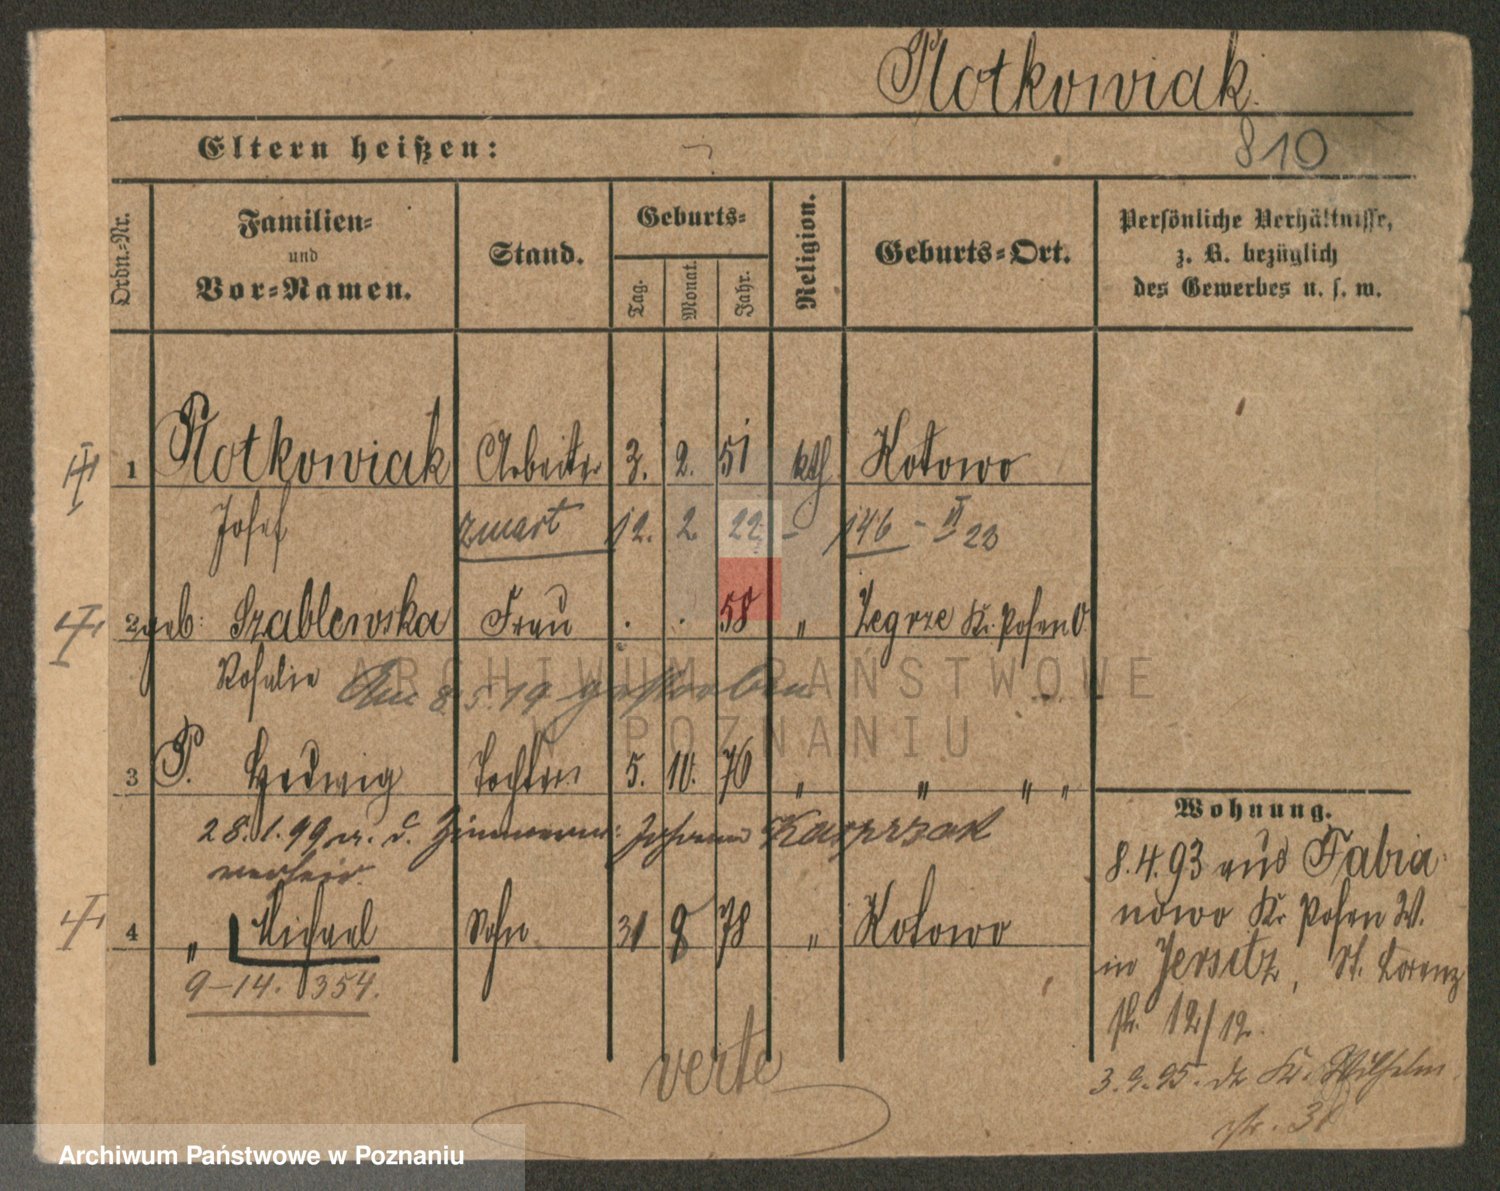 Rotkowiak.
810
Eltern heißen:
Ordn.-Nr.
Familien-
und
Vor-Namen.
Stand.
Geburts-
Tag.
Monat.
Jahr.
Religion.
Geburts-Ort.
Persönliche Verhältnisse,
z. B. bezüglich
des Gewerbes u. s. w.
1 Rotkowiak Arbeiter 3. 2. 51 kth Kotowo
Josef zmart 12. 2. 22. - 146 - II 23
2 geb: Szablewska Frau . . 58 " Zegrze Kr. Posen O.
Rosalie Am 8.5.19 gestorben
3 P. Hedwig Tochter 5. 10. 76 " " " "
28.1.99 m. d. Zimmerm: Johann Kasprzak
verheir.
4 " Michael Sohn 31 8 78 " Kotowo
9-14. 354.
verte
Wohnung.
8.4.93 aus Fabia-
nowo Kr Posen W.
in Jersitz, St. Lorenz
str. 12/12.
3.9.95. Wilhelm
str. 38
ARCHIWUM PAŃSTWOWE
W POZNANIU
Archiwum Państwowe w Poznaniu